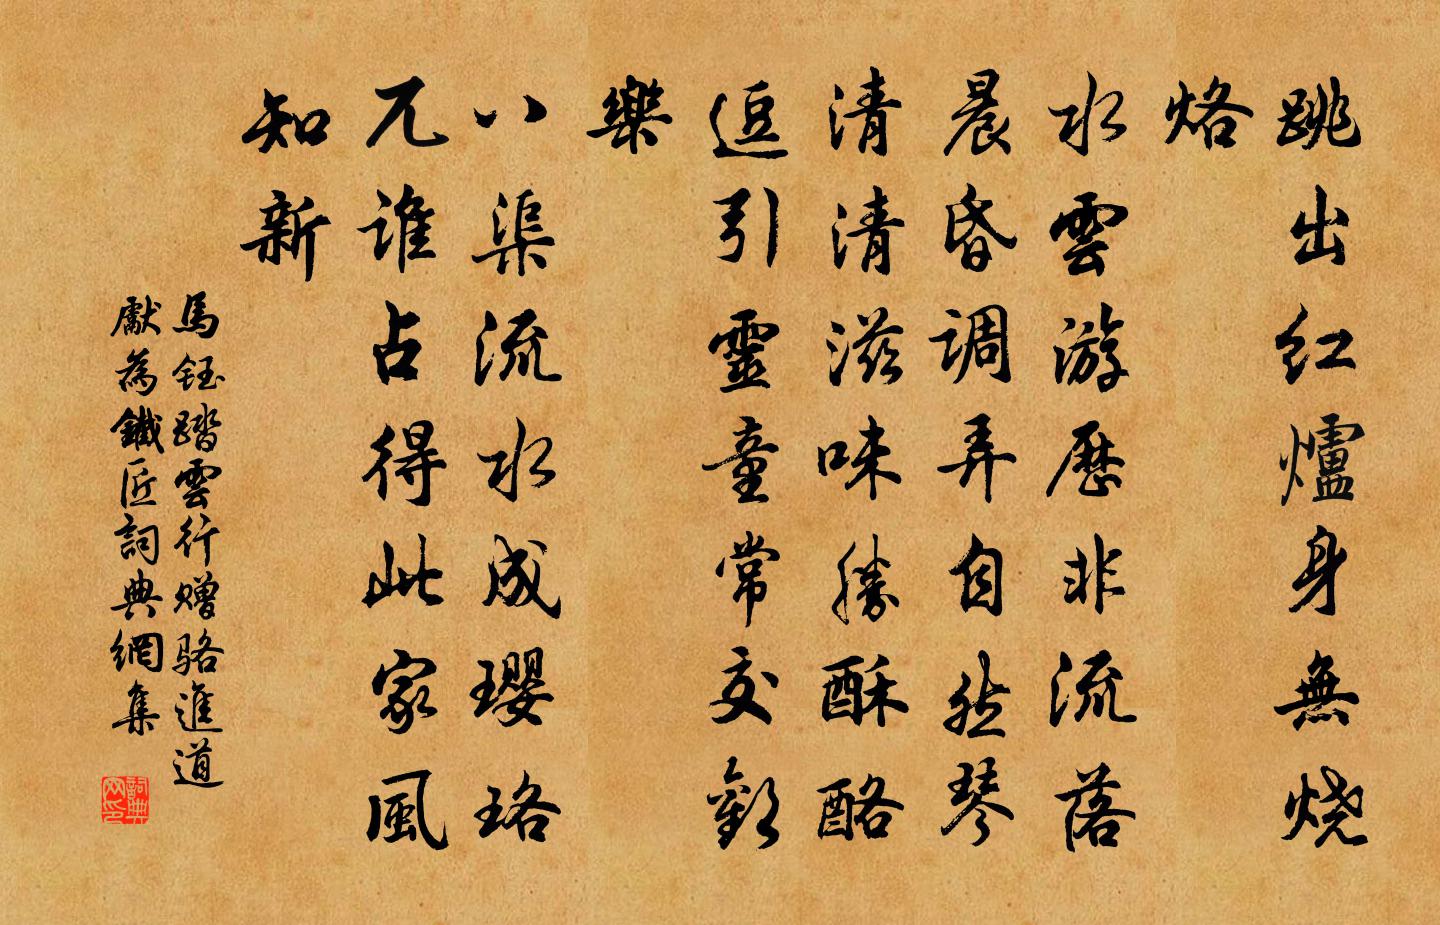 跳出红爐身無烧
烙
水雲游歷非流落
晨昏调弄自然琴
清清滋味勝酥酪
逗引靈童常交歡
樂
八渠流水成璎珞
兀谁占得此家風
知新
馬鈺踏雲行赠骆進道
獻為鐵匠詞典網集
詞典网印